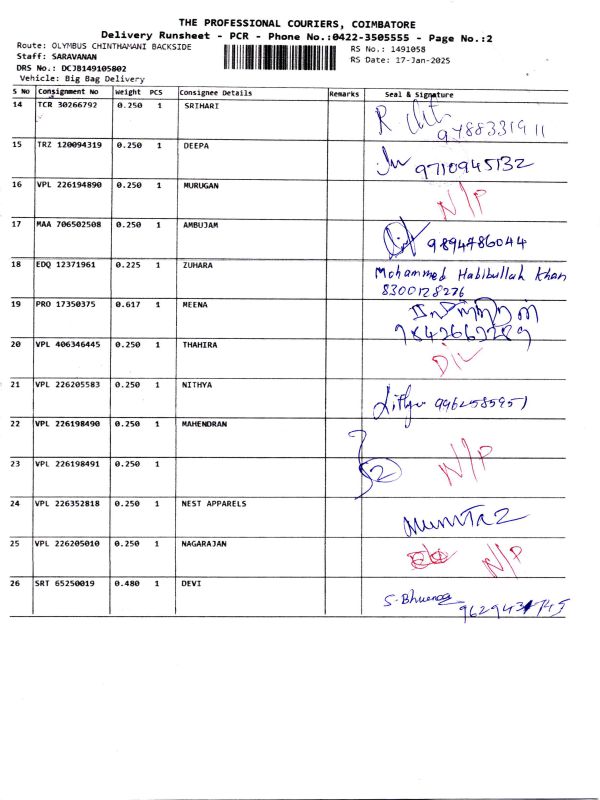 THE PROFESSIONAL COURIERS, COIMBATORE
Delivery Runsheet - PCR - Phone No.:0422-3505555 - Page No.:2
Route: OLYMBUS CHINTHAMANI BACKSIDE RS No.: 1491058
Staff: SARAVANAN RS Date: 17-Jan-2025
DRS No.: DCJB149105802
Vehicle: Big Bag Delivery
S No Consignment No Weight PCS Consignee Details Remarks Seal & Signature
14 TCR 30266792 0.250 1 SRIHARI
9788331911
15 TRZ 120094319 0.250 1 DEEPA 9710945132
16 VPL 226194890 0.250 1 MURUGAN N/P
17 MAA 706502508 0.250 1 AMBUJAM 9894786044
18 EDQ 12371961 0.225 1 ZUHARA Mohammed Habibullah Khan
8300128276
19 PRO 17350375 0.617 1 MEENA
20 VPL 406346445 0.250 1 THAHIRA D/L
21 VPL 226205583 0.250 1 NITHYA
22 VPL 226198490 0.250 1 MAHENDRAN
23 VPL 226198491 0.250 1 2 N/P
24 VPL 226352818 0.250 1 NEST APPARELS Mumtaz
25 VPL 226205010 0.250 1 NAGARAJAN N/P
26 SRT 65250019 0.480 1 DEVI